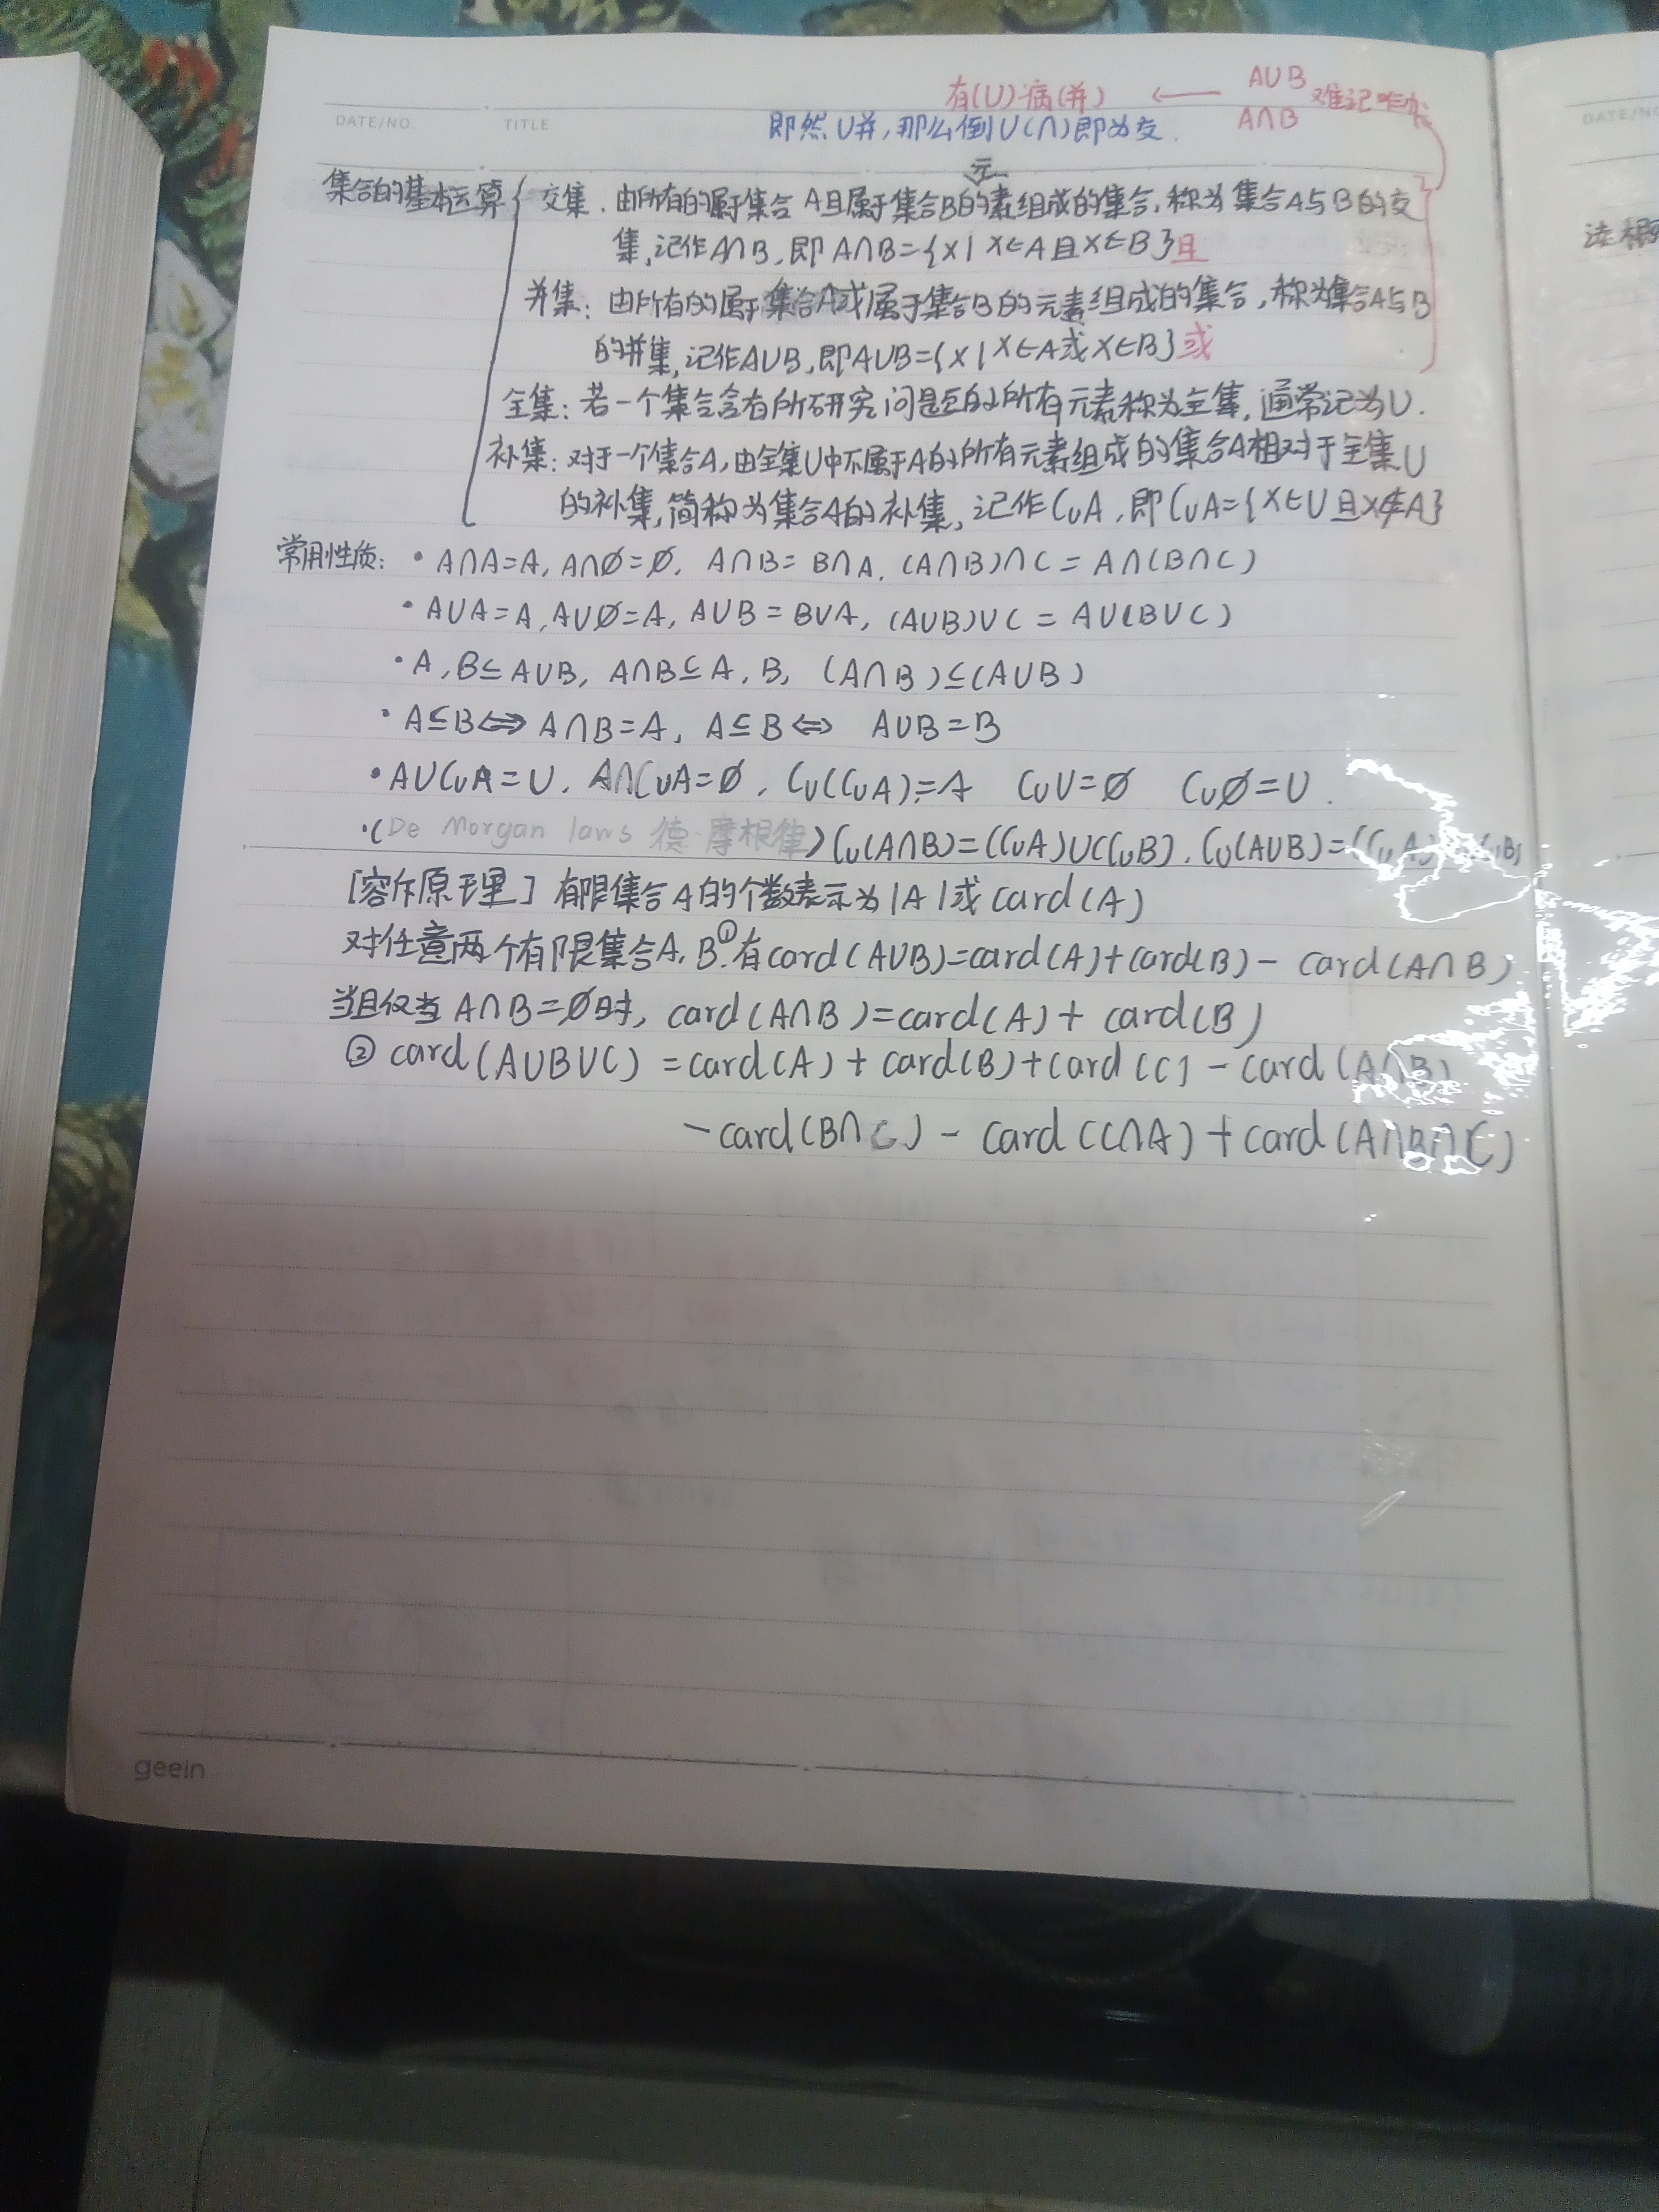 AUB
有(U)病(并) ← A∩B 难记
DATE/NO. TITLE 即然U并,那么倒U(∩)即为交.
DATE/NO
元
集合的基本运算 { 交集. 由所有的属于集合A且属于集合B的素组成的集合,称为集合A与B的交
集,记作A∩B,即A∩B={x|x∈A且x∈B}且
并集: 由所有的属于集合A或属于集合B的元素组成的集合,称为集合A与B
的并集,记作A∪B,即A∪B={x|x∈A或x∈B}或
全集: 若一个集合含有所研究问题的所有元素称为全集,通常记为U.
补集: 对于一个集合A,由全集U中不属于A的所有元素组成的集合A相对于全集U
的补集,简称为集合A的补集,记作∁UA,即∁UA={x∈U且x∉A}
常用性质: • A∩A=A, A∩∅=∅, A∩B=B∩A, (A∩B)∩C=A∩(B∩C)
• A∪A=A, A∪∅=A, A∪B=B∪A, (A∪B)∪C=A∪(B∪C)
• A,B⊆A∪B, A∩B⊆A,B, (A∩B)⊆(A∪B)
• A⊆B⇔A∩B=A, A⊆B⇔A∪B=B
• A∪∁UA=U, A∩∁UA=∅, ∁U(∁UA)=A ∁UU=∅ ∁U∅=U.
•(De Morgan laws 德·摩根律)∁U(A∩B)=(∁UA)∪(∁UB), ∁U(A∪B)=(∁UA) (∁UB)
[容斥原理] 有限集合A的个数表示为|A|或card(A)
对任意两个有限集合A,B,①有card(A∪B)=card(A)+card(B)-card(A∩B)
当且仅当A∩B=∅时, card(A∩B)=card(A)+card(B)
② card(A∪B∪C)=card(A)+card(B)+card(C)-card(A∩B)
-card(B∩C)-card(C∩A)+card(A∩B∩C)
geein